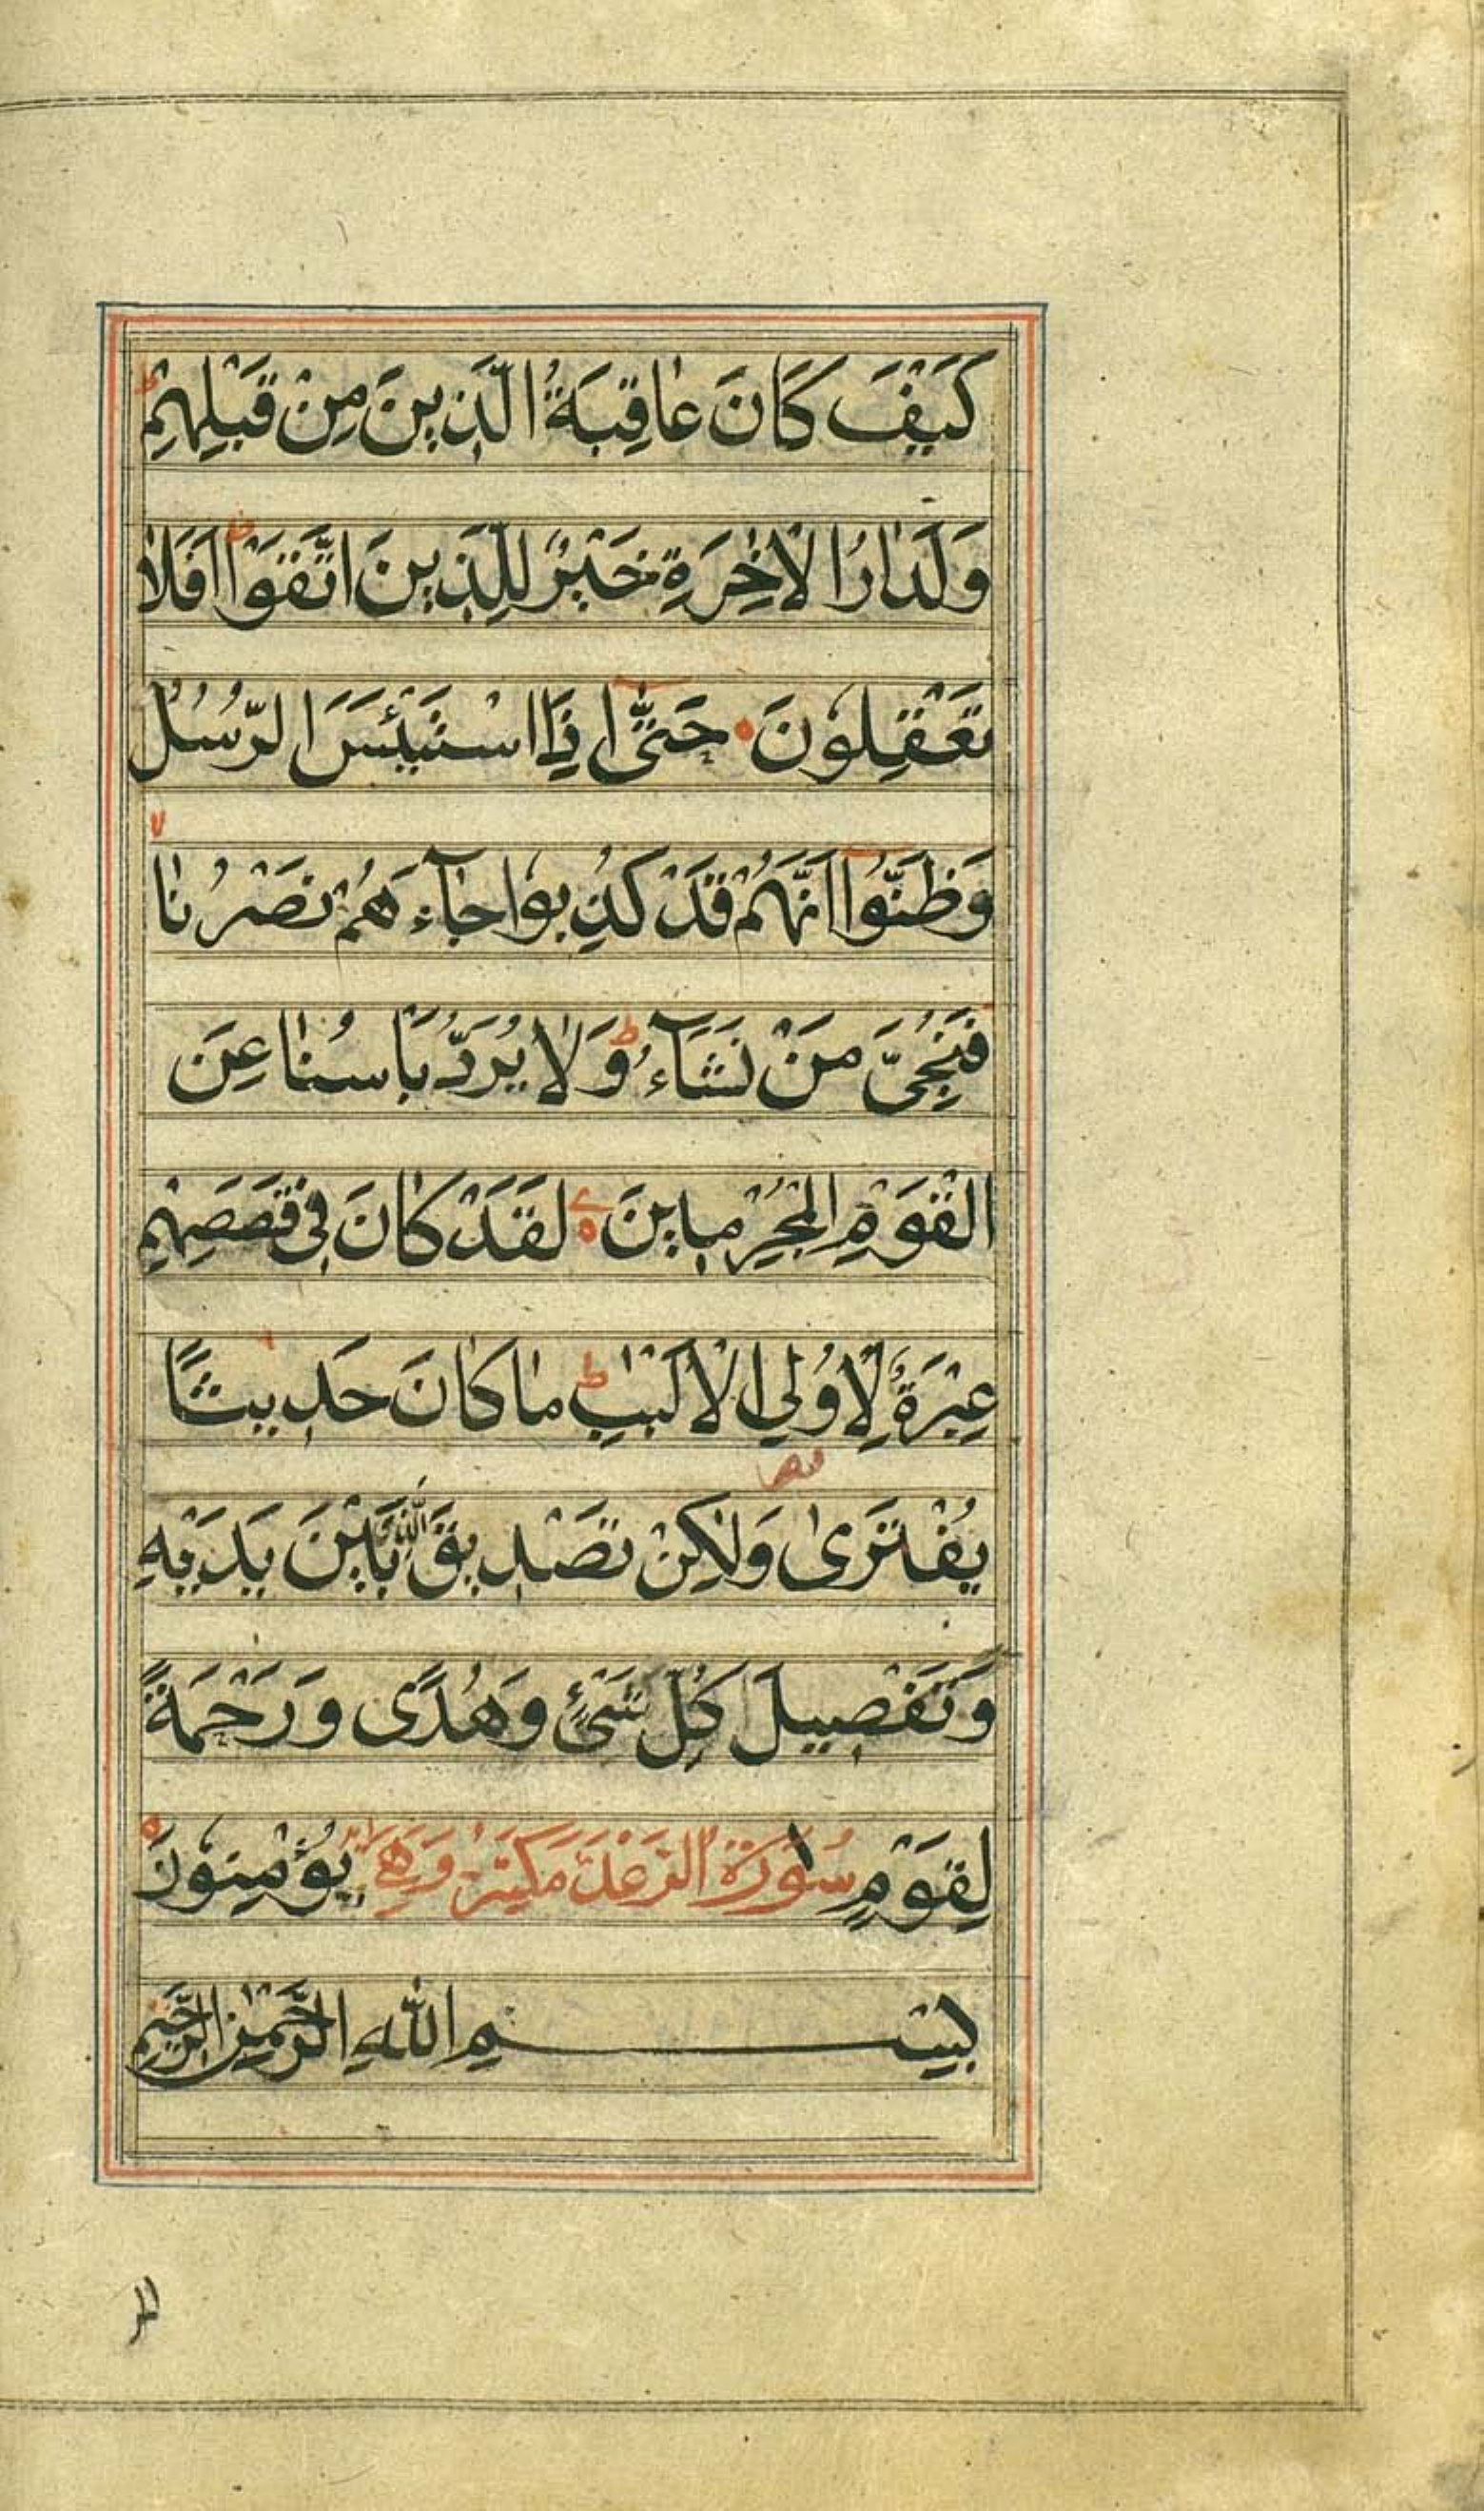 كَيْفَ كَانَ عَاقِبَةُ الَّذِينَ مِنْ قَبْلِهِمْ ط
وَلَدَارُ الْاٰخِرَةِ خَيْرٌ لِلَّذِينَ اتَّقَوْا اَفَلَا
تَعْقِلُونَ حَتّٰى اِذَا اسْتَيْئَسَ الرُّسُلُ
وَظَنُّوا اَنَّهُمْ قَدْ كُذِبُوا جَآءَهُمْ نَصْرُنَا لا
فَنُجِّيَ مَنْ نَشَآءُ ط وَلَا يُرَدُّ بَأْسُنَا عَنِ
الْقَوْمِ الْمُجْرِمِينَ لَقَدْ كَانَ فِي قَصَصِهِمْ
عِبْرَةٌ لِاُولِي الْاَلْبٰبِ ط مَا كَانَ حَدِيثًا
يُفْتَرٰى وَلٰكِنْ تَصْدِيقَ الَّذِي بَيْنَ يَدَيْهِ
وَتَفْصِيلَ كُلِّ شَيْءٍ وَهُدًى وَرَحْمَةً
لِقَوْمٍ يُؤْمِنُونَ سُورَةُ الرَّعْدِ مَكِّيَّة وَهِيَ
بِسْمِ اللهِ الرَّحْمٰنِ الرَّحِيمِ
المر